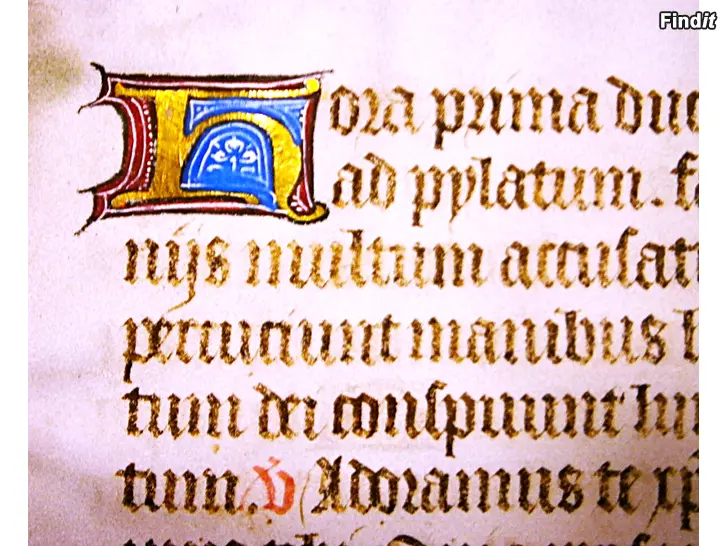 Findit
Hora prima duc
ad pylatum. fa
nijs multum accusat
percuciunt manibus
tum dei conspuunt lu
tum. V Adoramus te xp